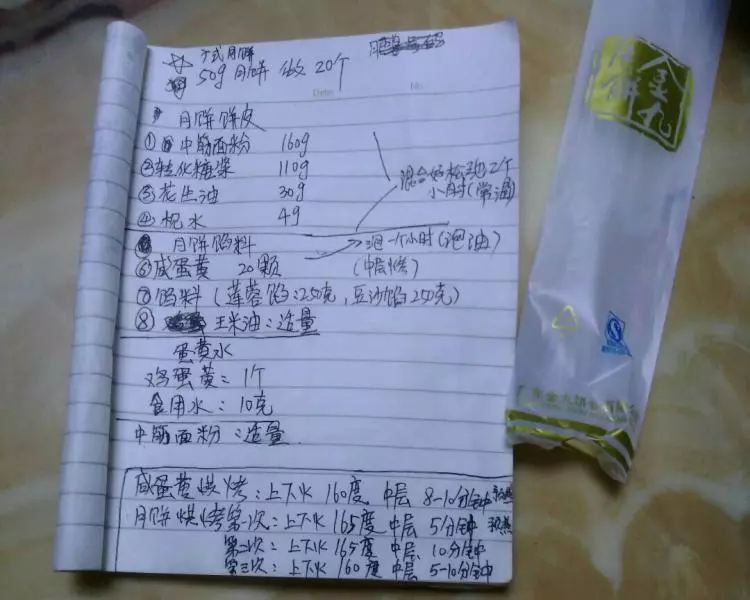 广式月饼
50g 月饼 做 20个
Date. No.
月饼饼皮
①中筋面粉 160g
②转化糖浆 110g
③花生油 30g
④枧水 4g
混合好松弛2个
小时(常温)
月饼馅料
泡一个小时(泡油)
⑥咸蛋黄 20颗 (中层烤)
⑦馅料(莲蓉馅:250克,豆沙馅250克)
⑧ 玉米油:适量
蛋黄水
鸡蛋黄:1个
食用水:10克
中筋面粉:适量
咸蛋黄烘烤:上下火 160度 中层 8-10分钟 预热
月饼烘烤第一次:上下火 165度 中层 5分钟 预热
第二次:上下火 165度 中层 10分钟
第三次:上下火 160度 中层 5-10分钟